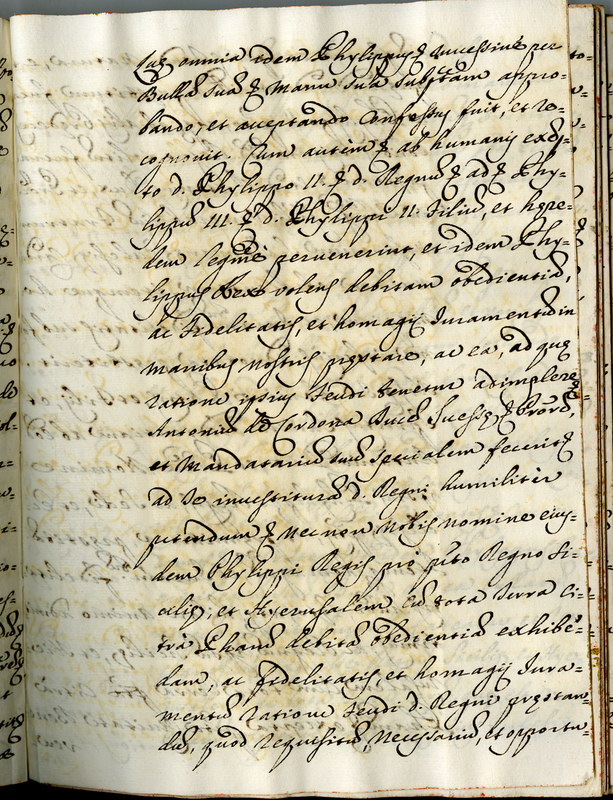 Quę omnia idem Phylippus successive per
Bullã suã & Manu sua subsctam appro-
bando, et acceptando Confessus fuit, et re-
cognovit. Cum autem ab humanis exep-
to d. Phylippo II. d. Regnũ ad Phy-
lippũ III. d. Phylippi II. filiũ, et hęre-
dem legmẽ pervenerint, et idem Phy-
lippus Rex volens debitam obedientiã,
ac fidelitatis, et homagij Iuramentũ in
manibus nostris pręstare, ac ea, ad quę
ratione ipsius feudi tenetur adimplere
Antoniũ de Cordona Ducẽ Suessę Prorẽ,
et Mandatariũ suũ specialem fecerit
ad se investiturã d. Regni humiliter
petendum & nec non nobis nomine eius-
dem Phylippi Regis pro pñto Regno Si-
cilię, et Hyerusalem Cũ tota terra ci-
tra Pharũ debitã obedientiã exhibe-
dam, ac fidelitatis, et homagij Iura-
mentũ ratione feudi d. Regni pręstan-
dũ, quod requisitũ, Necessariũ, et opportu-